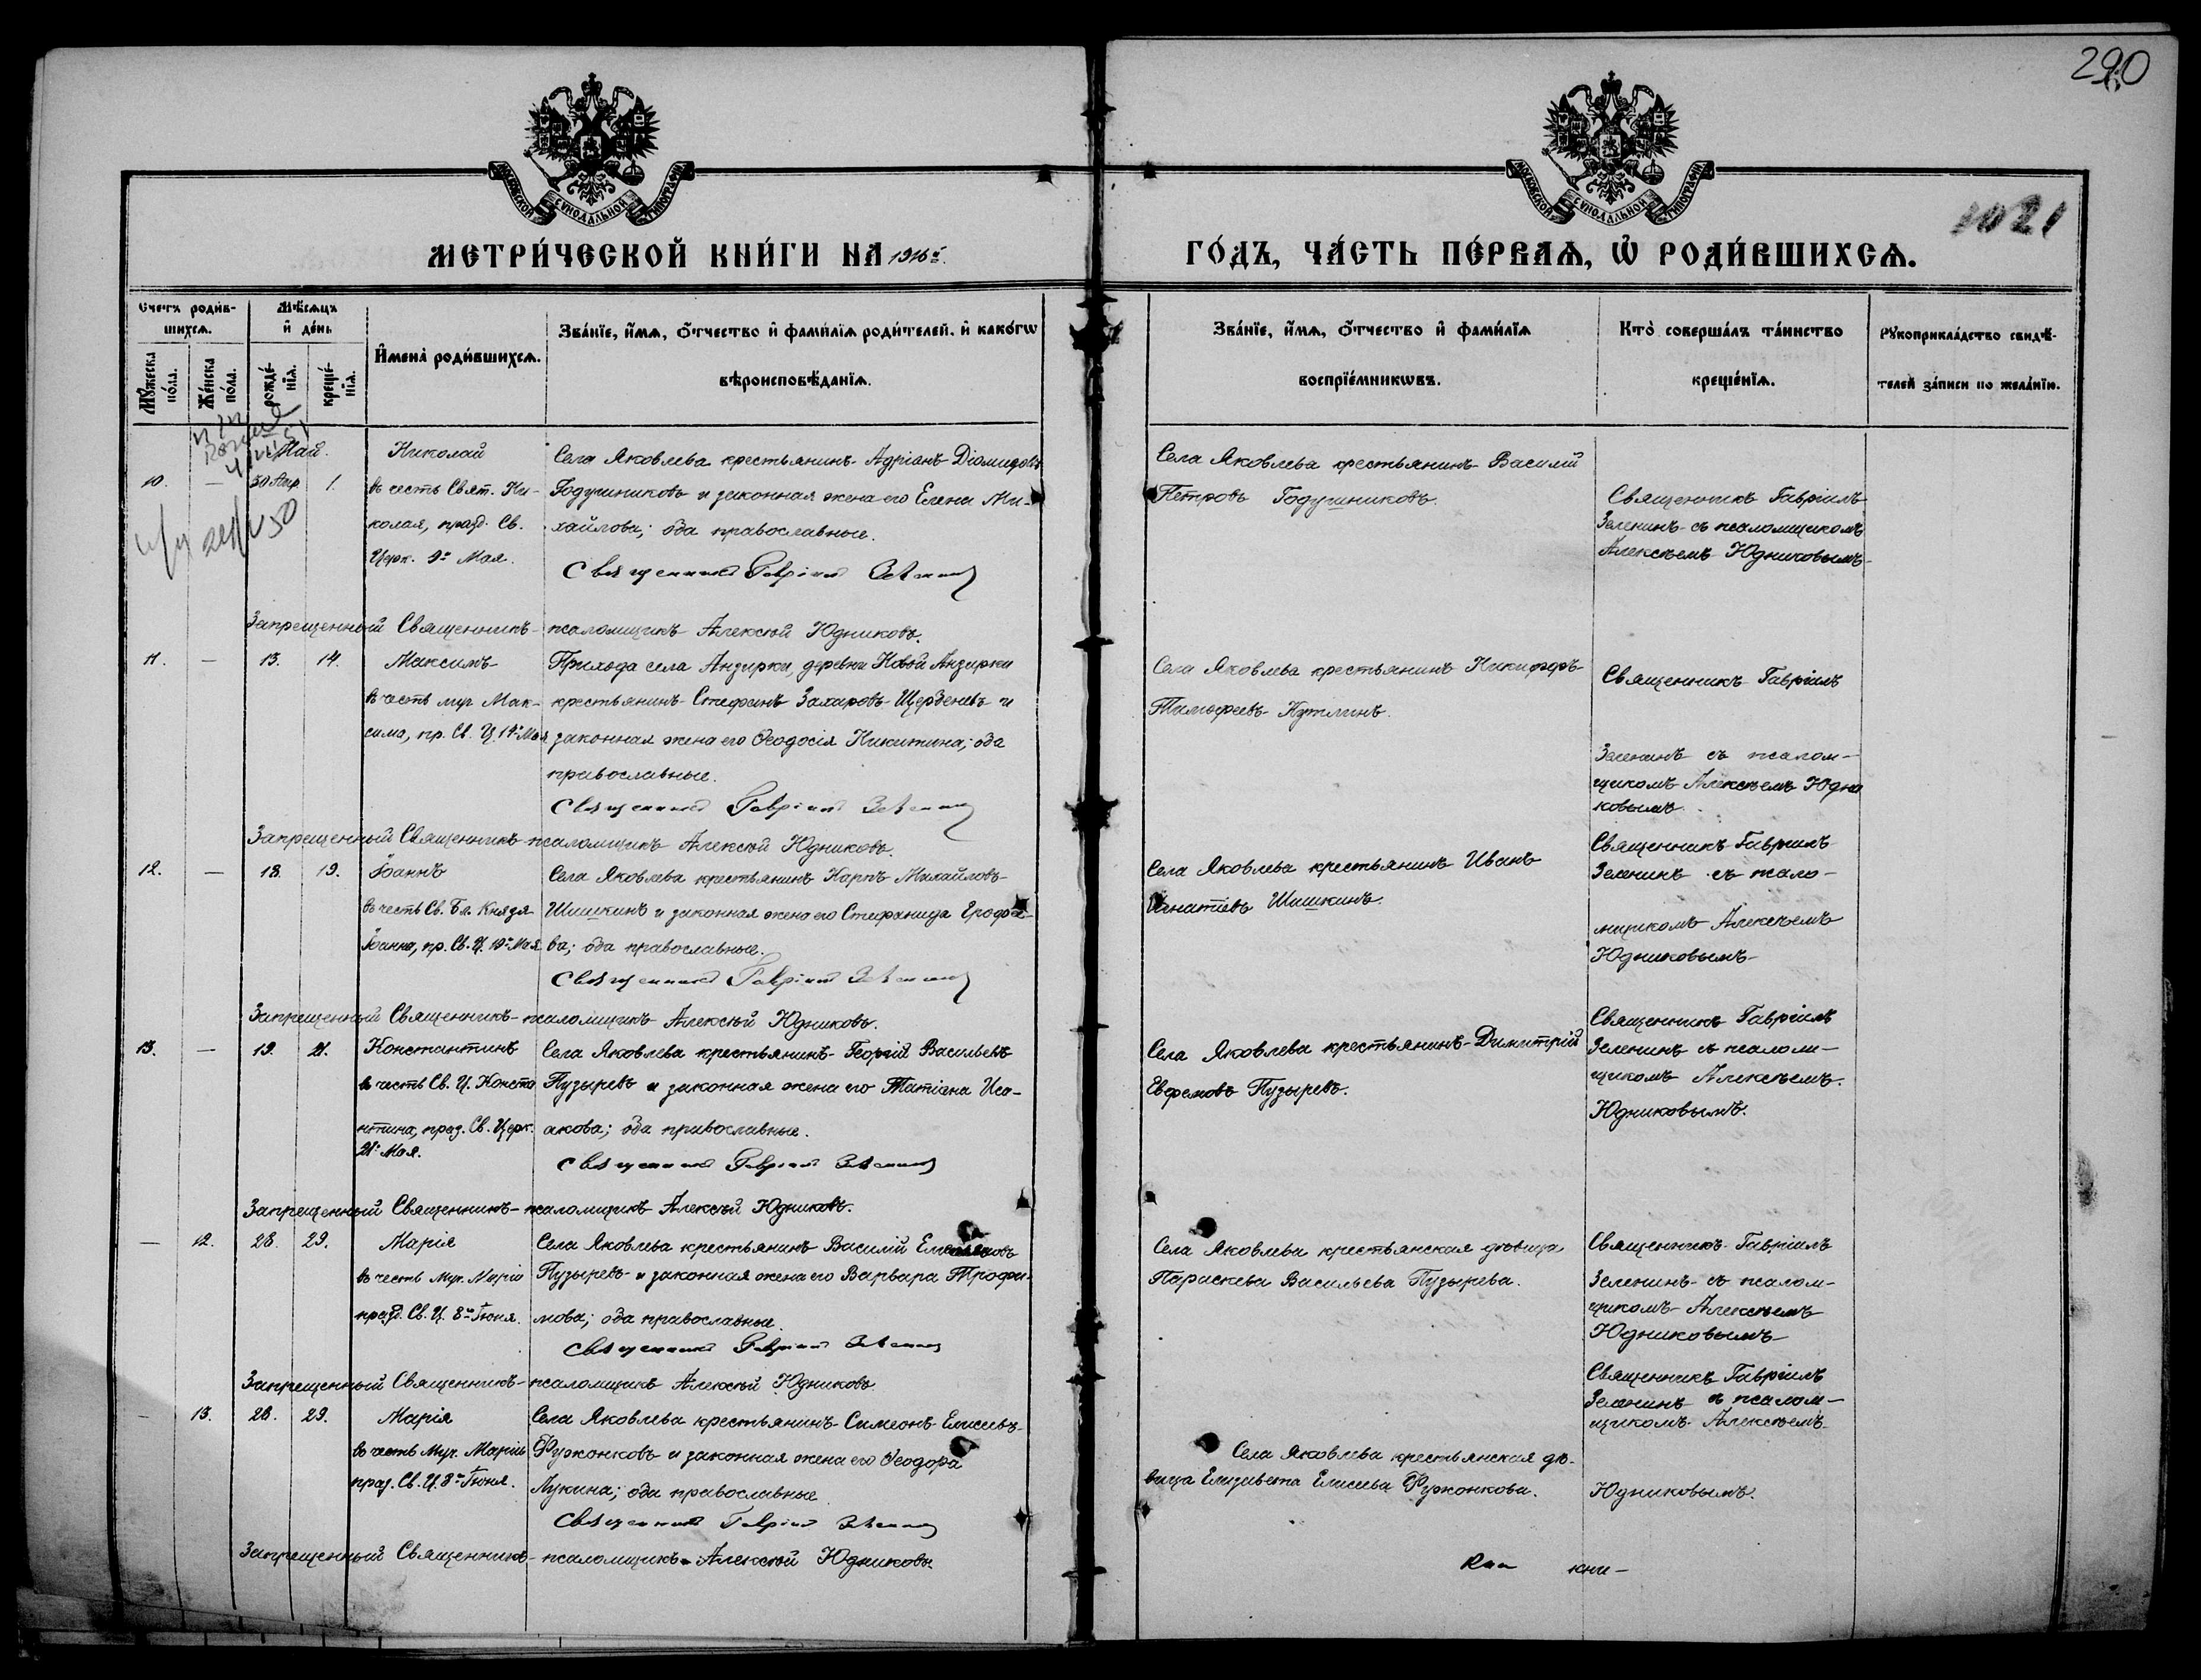 290
1021
МОСКОВСКОЙ СѴНОДАЛЬНОЙ ТИПОГРАФІИ
МОСКОВСКОЙ СѴНОДАЛЬНОЙ ТИПОГРАФІИ
МЕТРИ́ЧЕСКОЙ КНИ́ГИ НА 1916й
ГО́ДЪ, ЧА́СТЬ ПЕ́РВАѦ, Ѡ҆ РОДИ́ВШИХСѦ.
Счетъ роди́в-
шихсѧ.
Мꙋ́жеска по́ла.
Же́нска по́ла.
Мѣ́сѧцъ
и҆ де́нь
рожде́-
нїѧ.
креще́-
нїѧ.
И҆мена̀ роди́вшихсѧ.
Зва́нїе, и҆́мѧ, ѻ҆́тчество и҆ фами́лїѧ роди́телей, и҆ како́гѡ
вѣроисповѣ́данїѧ.
Зва́нїе, и҆́мѧ, ѻ҆́тчество и҆ фами́лїѧ
воспрїе́мникѡвъ.
Кто̀ соверша́лъ та́инство
креще́нїѧ.
Рꙋкоприкла́дство свидѣ́-
телей за́писи по жела́нїю.
Май.
10. — 30 Апр. 1.
Николай
въ честь Свят. Ни-
колая, празд. Св.
Церк. 9го Мая.
Села Яковлева крестьянинъ Адріанъ Діомидовъ
Годушниковъ и законная жена его Елена Ми-
хайлова; оба православные.
Священникъ Гавріилъ Зеленинъ
Села Яковлева крестьянинъ Василій
Петровъ Годушниковъ.
Священникъ Гавріилъ
Зеленинъ съ псаломщикомъ
Алексѣемъ Юдниковымъ
Запрещенный Священникъ-псаломщикъ Алексѣй Юдниковъ.
11. — 13. 14.
Максимъ
въ честь муч. Мак-
сима, пр. Св. Ц. 14го Мая
Прихода села Анзирки, деревни Новой Анзирки
крестьянинъ Стефанъ Захаровъ Щербеневъ и
законная жена его Ѳеодосія Никитина; оба
православные.
Священникъ Гавріилъ Зеленинъ
Села Яковлева крестьянинъ Никифоръ
Тимофеевъ Кутлинъ.
Священникъ Гавріилъ
Зеленинъ съ псалом-
щикомъ Алексѣемъ Юдни
ковымъ.
Запрещенный Священникъ-псаломщикъ Алексѣй Юдниковъ.
12. — 18. 19.
Іоаннъ
въ честь Св. Бл. Князя
Іоанна, пр. Св. Ц. 19го Мая
Села Яковлева крестьянинъ Карпъ Михайловъ
Шишкинъ и законная жена его Стефанида Ерофѣе-
ва; оба православные.
Священникъ Гавріилъ Зеленинъ
Села Яковлева крестьянинъ Иванъ
Игнатіевъ Шишкинъ.
Священникъ Гавріилъ
Зеленинъ съ псало-
мщикомъ Алексѣемъ
Юдниковымъ
Запрещенный Священникъ-псаломщикъ Алексѣй Юдниковъ.
13. — 19. 21.
Константинъ
въ честь Св. Ц. Конста
нтина, празд. Св. Церк.
21го Мая.
Села Яковлева крестьянинъ Георгій Васильевъ
Пузыревъ и законная жена его Татіана Иса-
акова; оба православные.
Священникъ Гавріилъ Зеленинъ
Села Яковлева крестьянинъ Димитрій
Ефремовъ Пузыревъ.
Священникъ Гавріилъ
Зеленинъ съ псалом-
щикомъ Алексѣемъ
Юдниковымъ.
Запрещенный Священникъ-псаломщикъ Алексѣй Юдниковъ.
— 12. 28. 29.
Марія
въ честь Муч. Маріи
празд. Св. Ц. 8го Іюня.
Села Яковлева крестьянинъ Василій Емельяновъ
Пузыревъ и законная жена его Варвара Трофи-
мова; оба православные.
Священникъ Гавріилъ Зеленинъ
Села Яковлева крестьянская дѣвица
Параскева Васильева Пузырева.
Священникъ Гавріилъ
Зеленинъ съ псалом-
щикомъ Алексѣемъ
Юдниковымъ
Запрещенный Священникъ-псаломщикъ Алексѣй Юдниковъ
— 13. 28. 29.
Марія
въ честь Муч. Маріи
празд. Св. Ц. 8го Іюня.
Села Яковлева крестьянинъ Симеонъ Елисеевъ
Фужонковъ и законная жена его Ѳеодора
Лукина; оба православные
Священникъ Гавріилъ Зеленинъ
Села Яковлева крестьянская дѣ-
вица Елизавета Елисеева Фужонкова.
Священникъ Гавріилъ
Зеленинъ съ псалом-
щикомъ Алексѣемъ
Юдниковымъ.
Запрещенный Священникъ-псаломщикъ Алексѣй Юдниковъ.
кни-